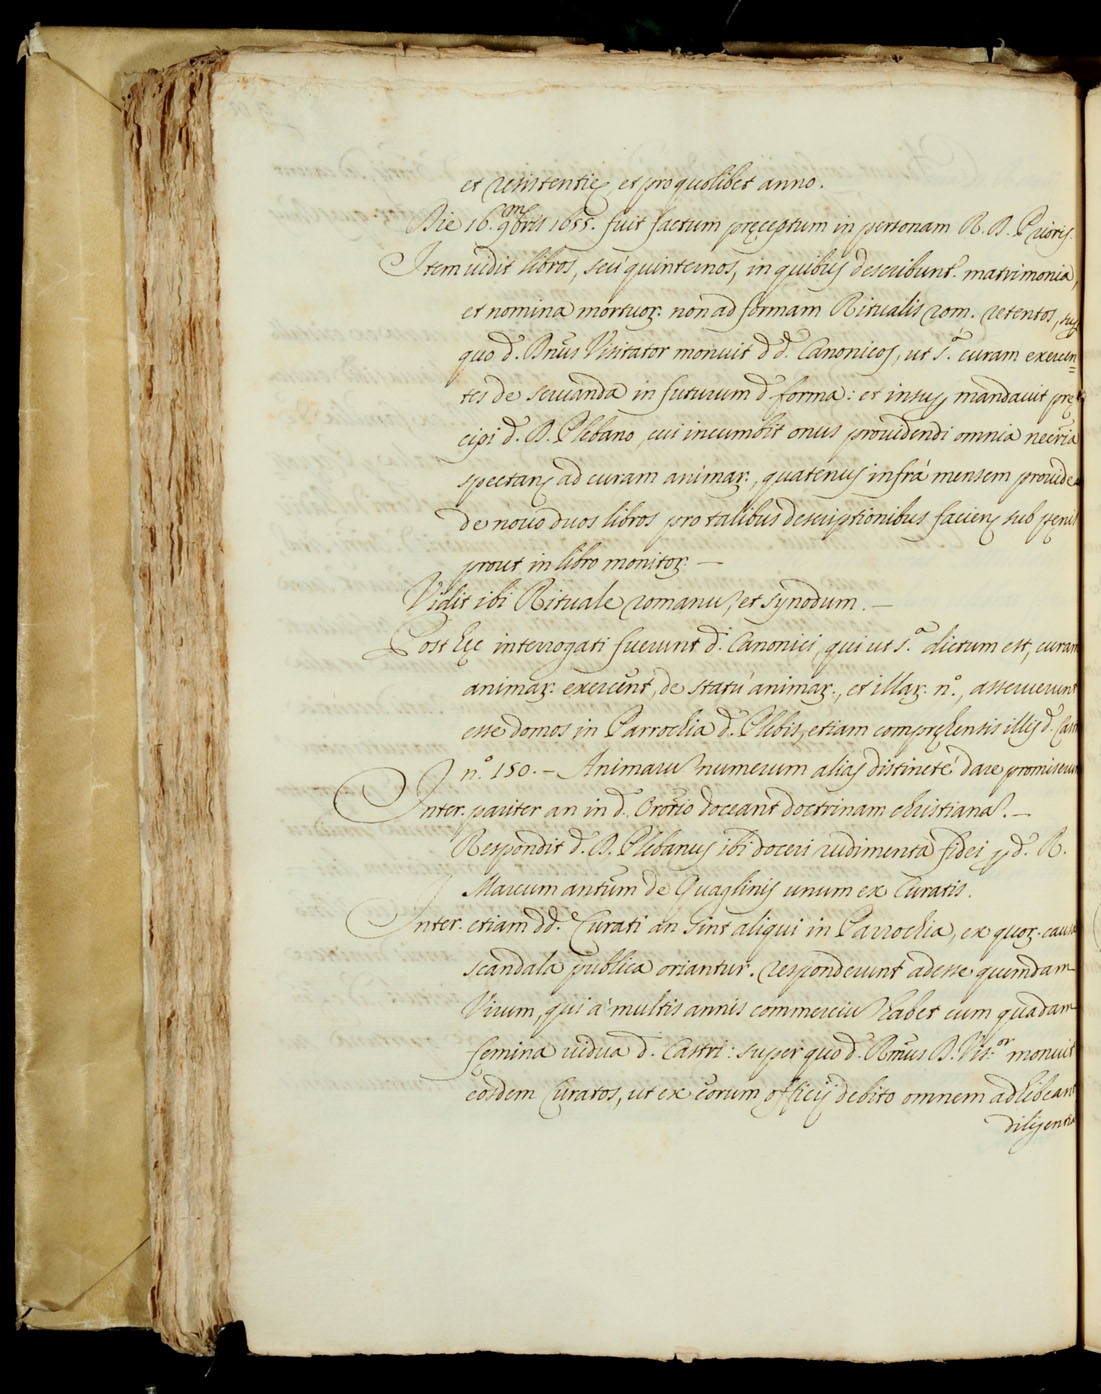 et resistentię et pro quolibet anno.
Die 16. 9mbris 1655. fuit factum pręceptum in personam R. D. Prioris.
Item vidit libros, seu quinternos, in quibus describunt.r matrimonia,
et nomina mortuor. non ad formam Ritualis rom. retentos, sup
quo d. Dnus Visitator monuit dd. Canonicos, ut s.a curam exercen=
tes de servanda in futurum d. forma: et insup mandavit prę
cipi d. D. Plebano, cui incumbit onus providendi omnia necria
spectan. ad curam animar., quatenus infrà mensem provide
de novo duos libros pro talibus descriptionibus facien. sub pęnis
prout in libro monitor. —
Vidit ibi Rituale romanu, et synodum. —
Post hęc interrogati fuerunt d. Canonici, qui ut s.a dictum est, curam
animar. exercent, de statu animar., et illar. n.o, asseruerunt
esse domos in Parrochia d. Plebis, etiam compręhensis illis d. Castri
n.o 150. — Animaru numerum alias distinctè dare promiserunt
Inter. pariter an in d. Orotio doceant doctrinam christiana. —
Respondit d. D. Plebanus ibi doceri rudimenta fidei p d. R.
Marcum antum de Quaglinis unum ex Curatis.
Inter. etiam dd. Curati an sint aliqui in Parrochia, ex quor. causa
scandala publica oriantur. responderunt adesse quemdam
Virum, qui à multis annis commerciu habet cum quadam
femina vidua d. Castri: super quo d. Rmus D. Vis.or monuit
eosdem Curatos, ut ex eorum officij debito omnem adhibeant
diligentia